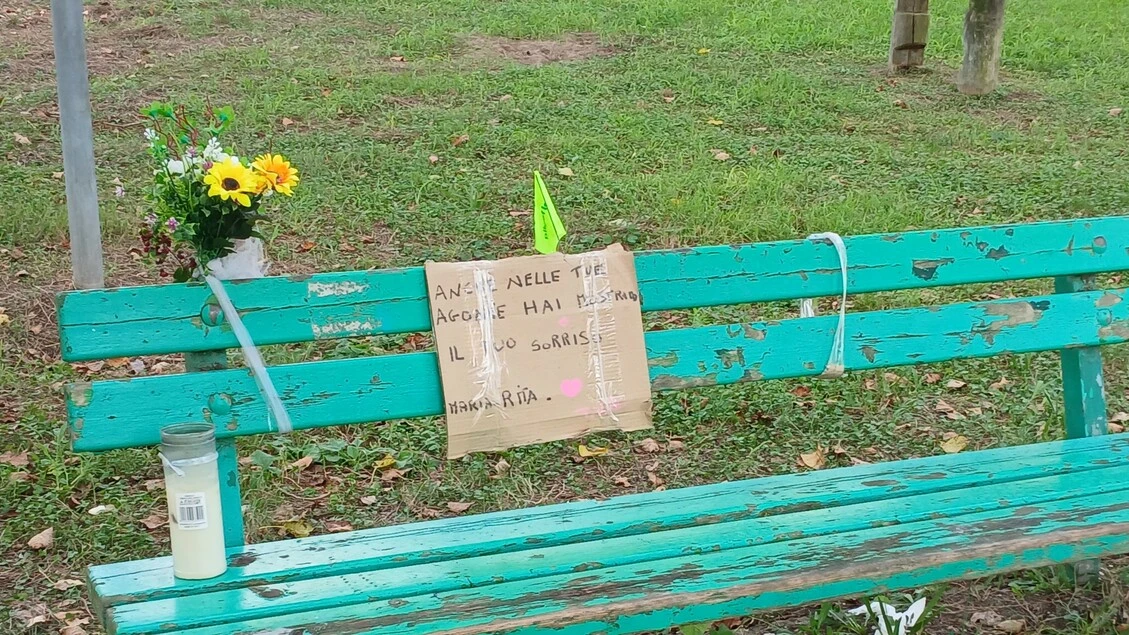 ANCHE NELLE TUE
AGONIE HAI MOSTRATO
IL TUO SORRISO
MARIA RITA.